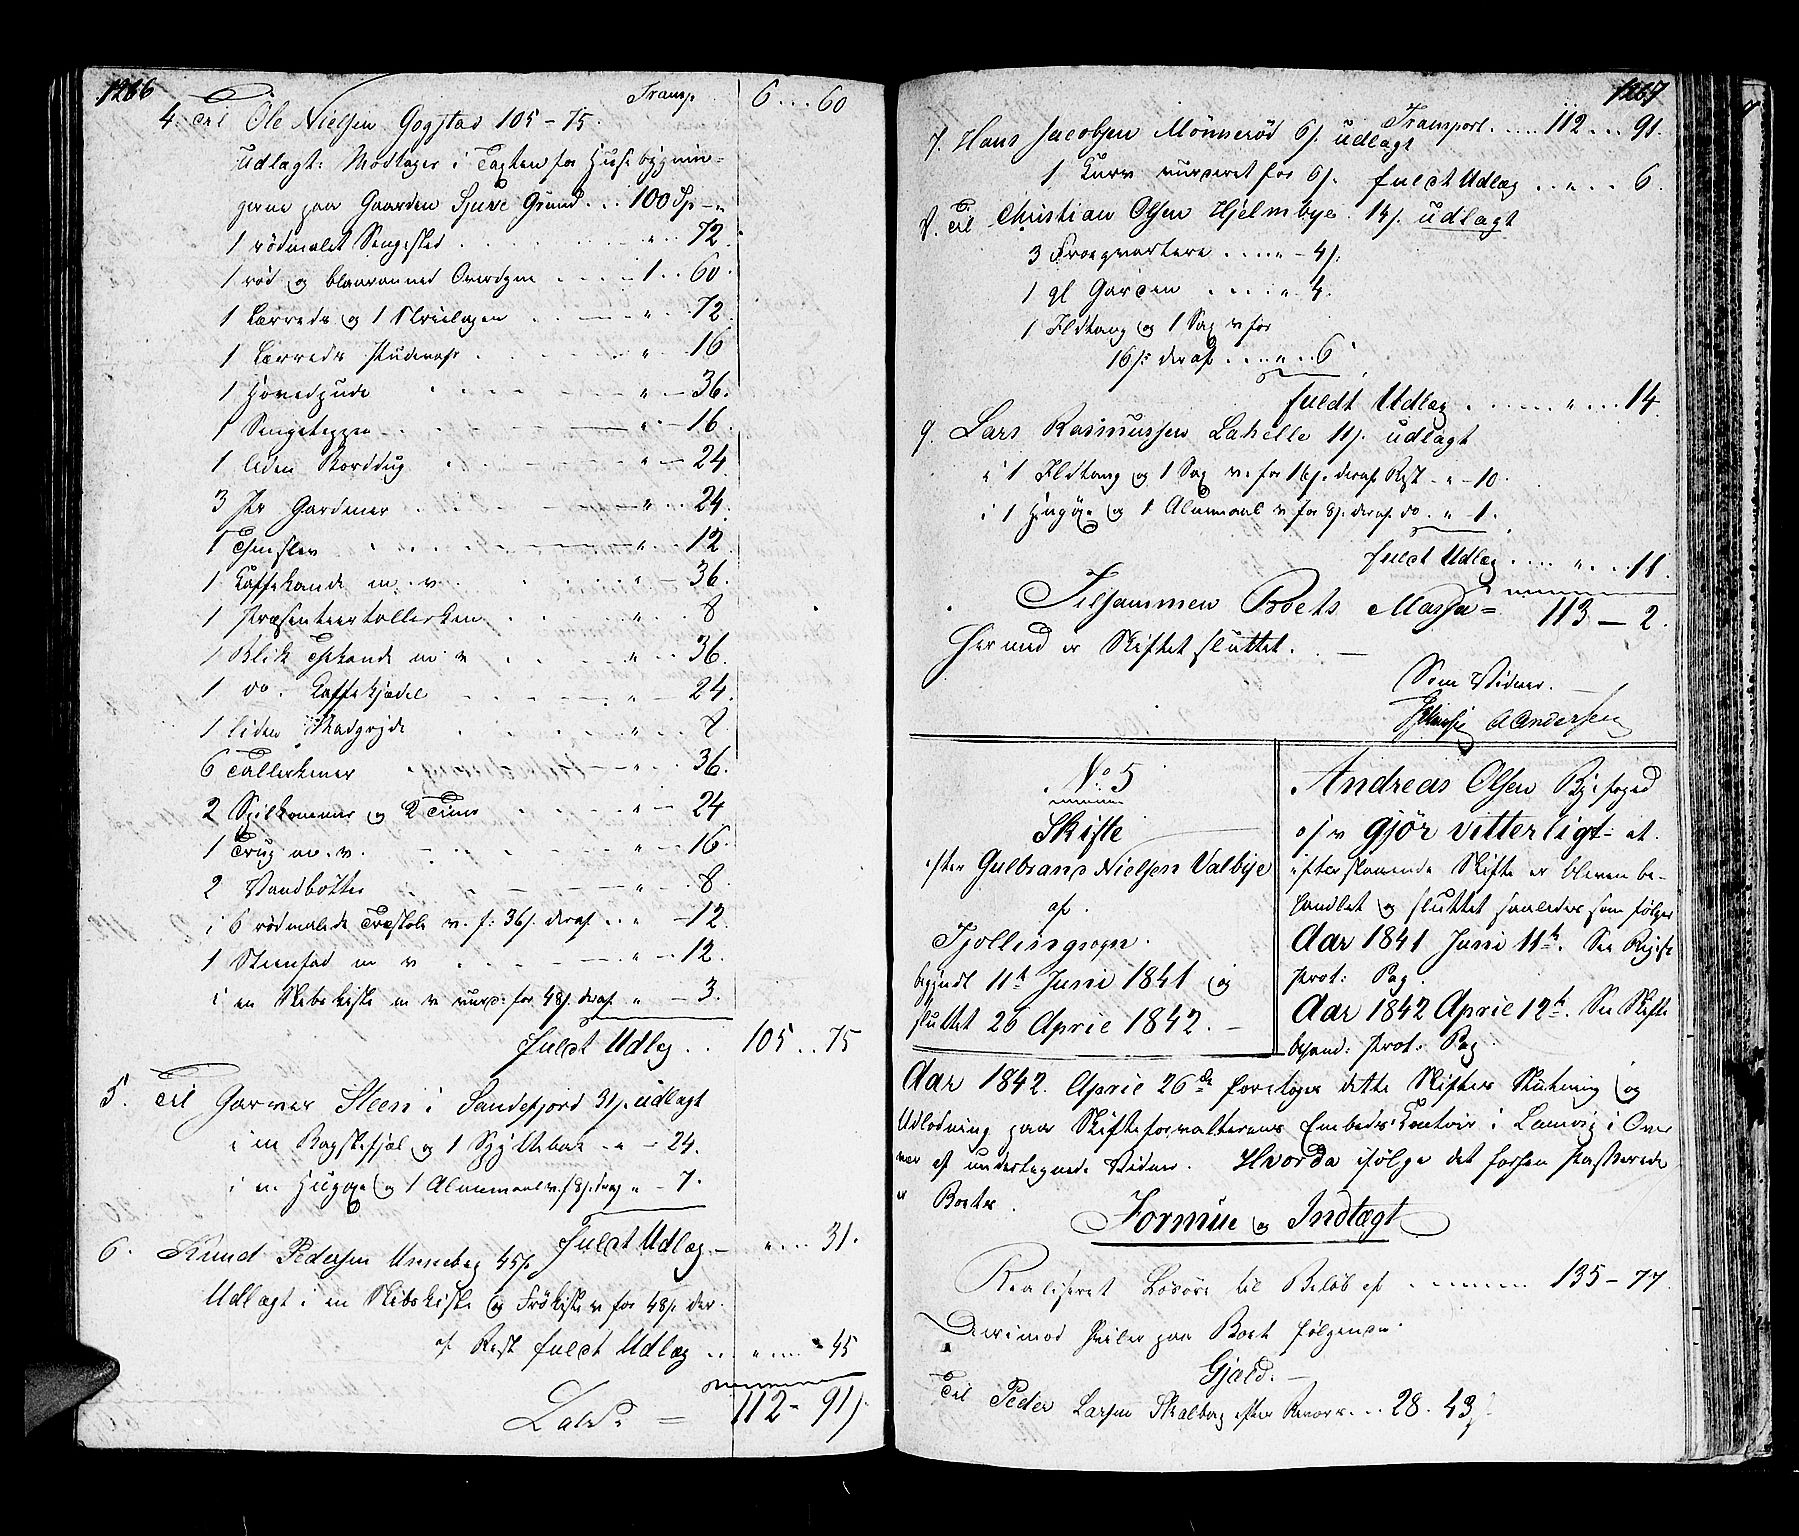 1266
Transp. 6 .. 60
4. Til Ole Nielsen Gogstad 105 - 75.
Udlagt: Modtager i Taxten for Huusbygnin-
gerne paa Gaarden Sjuve Grund . . 100 Sp - "
1 rödmalet Sengested . . . " .. 72.
1 rød og blaarannet Overdyne . . . 1 .. 60.
1 Lærreds og 1 Strielagen . . " .. 72.
1 Lærreds Pudevaar . . " - 16
1 Hovedpude . . " - 36.
1 Sengeteppe . . " - 16.
1 liden Borddug . . " - 24
3 Pr Gardiner . . " - 24.
1 Theeslev . . " - 12.
1 Kaffekande m. v. . . " - 36.
1 Præsenteertallerken . . " . 8
1 Blik Thekande m v . . " .. 36.
1 do. Kaffekjedel . . " - 24.
1 liden Stadgryde . . " - 8.
6 Tallerkener . . " .. 36.
2 Spilkommer og 2 Tiner . . " - 24
1 Trug m. v. . . " - 16.
2 Vandbøtter . . " .. 8.
i 6 rödmalede Træstole v. f: 36 s. deraf .. " - 12.
1 Steenfad m v . . " .. 12.
i en Skibskiste m v vurd: for 48 s. deraf " - 3.
fuldt Udlæg . . 105 .. 75
5. Til Garver Steen i Sandefjord 31 s. udlagt
i en Bogskefjæl og 1 Spyttebak .. " - 24.
i en Hugøxe og 1 Alunmaal v. f 8 s. deraf " - 7.
fuldt Udlæg - " .. 31.
6. Knud Pedersen Unneberg 45 s.
Udlægt i en Skibskiste og Frökiste v for 48 s. der-
af Rest fuldt Udlæg .. " .. 45
Lats = 112 - 91 s.
1267
Transport. . . 112 .. 91.
7. Hans Jacobsen Mönnerød 6 s. udlagt
1 Kurv vurderet for 6 s. fuldt Udlæg .. " .. 6.
8. Til Christian Olsen Hjelmbye. 14 s. udlagt
3 Træqvartere . . " - 4 s.
1 gl Gardin . . " . 4.
1 Ildtang og 1 Sag v for
16 s: deraf . . " .. 6
fuldt Udlæg . . " .. 14.
9. Lars Rasmussen Lahelle 11 s. udlagt
i 1 Ildtang og 1 Sag v. for 16 s. deraf Rest - " - 10.
i 1 Hugøxe og 1 Alunmaal v for 8 s. deraf do . " - 1.
fuldt Udlæg . . " .. 11.
Tilsammen Boets Massa = 113 - 2.
Hermed er Skiftet sluttet. -
Som Vidner. -
A Andersen
No. 5
Skifte
efter Gulbrand Nielsen Valbye
af
Tjöllingsogn.
begyndt 11th Juni 1841 og
sluttet 26 April 1842. -
Andreas Olsen Byefoged
osv gjör vitterligt: at
efterstaaende Skifte er bleven be-
handlet og sluttet saaledes som fölger
Aar 1841 Juni 11th. See Regist
Prot: Pag.
Aar 1842 April 12th. See Skifte
behand: Prot: Pag.
Aar 1842. April 26de foretoges dette Skiftes Slutning og
Udlodning paa Skifteforvalterens Embeds-Contoir i Laurvig i Over
vær af undertegnede Vidner. Hvorda ifölge det forhen passerede
er Boets
Formue og Indtægt
Realiseret Lösöre til Belöb af . . 135 - 77.
Derimod hviler paa Boet fölgende
Gjæld. -
Til Peder Larsen Skalberg efter Revers . . 28 . 43 s.